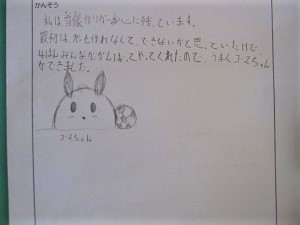 かんそう
私は当緑作りが一番心に残っています。
最初は、形も作れなくて、できないかと思っていたけど
4はんみんながんばってやってくれたので、うまくコースちゃん
ができました。
コースちゃん